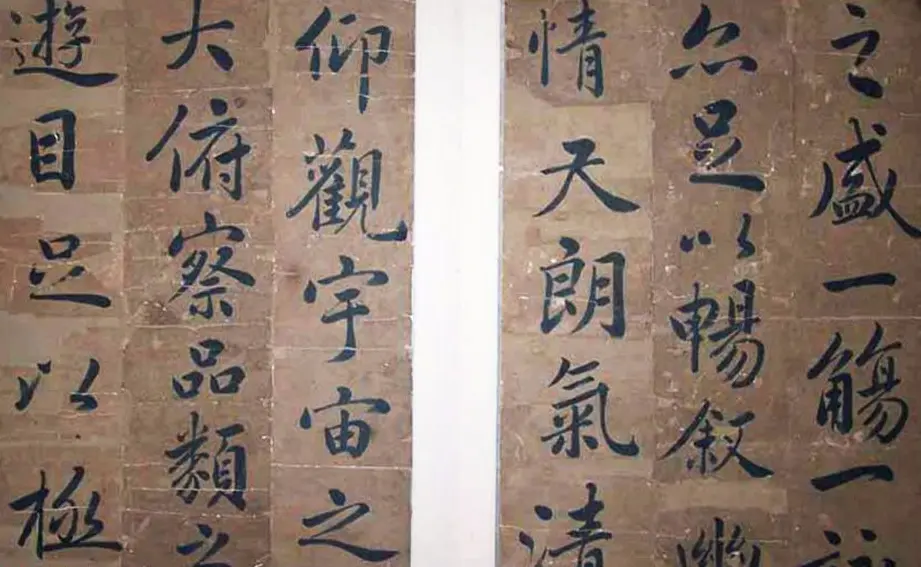 之盛一觴一詠
亦足以暢敘幽
情天朗氣清
仰觀宇宙之
大俯察品類之
遊目足以極